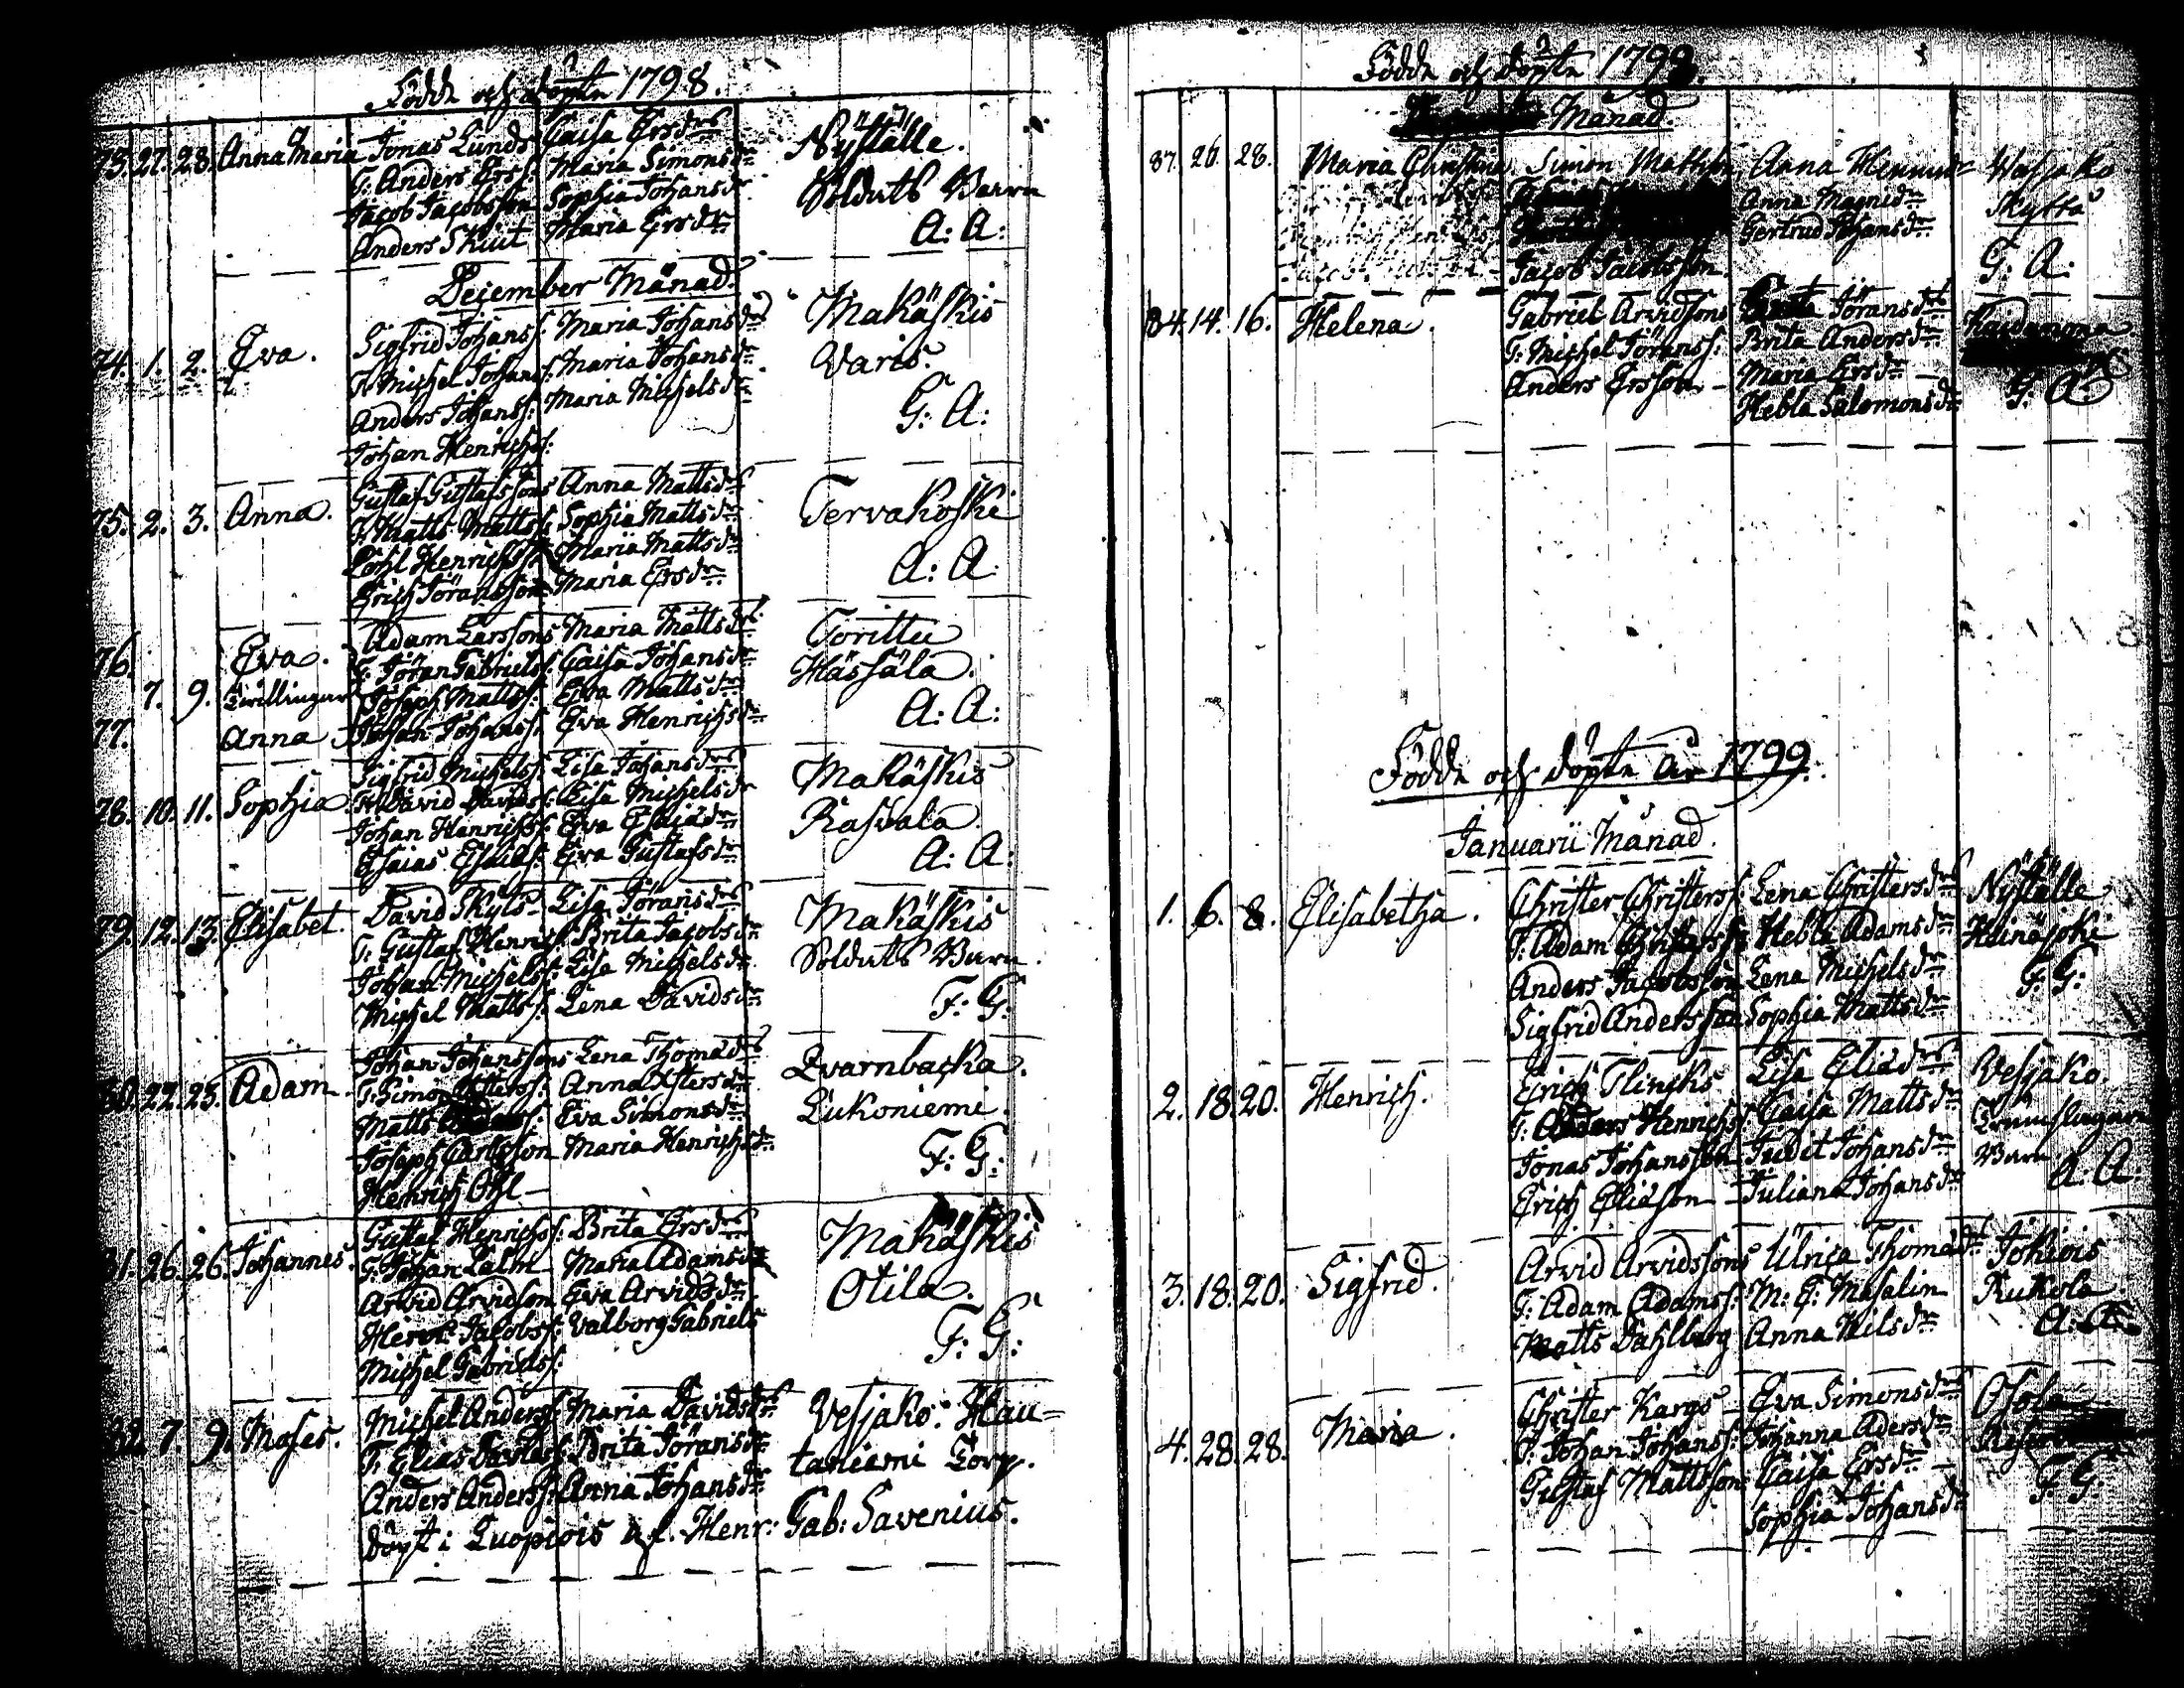 Födde och döpte 1798.
73. 27. 28. Anna Maria Jonas Lunds Caisa Ersdrs Nyställe.
F: Anders Erss: Maria Simonsdr Soldats Barn
Jacob Jacobsson Sophia Johansdr
Anders Skiut Maria Ersdr A: A:
December Månad.
74. 1. 2. Eva. Sigfrid Johanss: Maria Johansdrs Makäskis
F: Michel Johanss: Maria Johansdr Varis.
Anders Johanss: Maria Michelsdr G: A:
Johan Henrichss:
75. 2. 3. Anna. Gustaf Gustafssons Anna Mattsdrs Tervakoski
F: Matts Mattss: Sophia Mattsdr
Henrichss: Maria Mattsdr A: A:
Erich Jöransson Maria Ersdr
76. Eva. Adam Larssons Maria Mattsdrs Torittu
7. 9. Tvillingar F: Jöran Gabrielss: Caisa Johansdr Hässälä.
Joseph Mattss: Eva Mattsdr
77. Anna. Johan Johanss: Eva Henrichsdr A: A:
78. 10. 11. Sophia. Sigfrid Michelss: Lisa Johansdrs Makäskis
F: David Davidss: Lisa Michelsdr Rasvala.
Johan Henrichss: Eva Esaiædr
Esaias Esaiæs: Eva Gustafsdr A: A:
79. 12. 13. Elisabet. David Skyts Lisa Jöransdrs Makäskis
F: Gustaf Henrichss: Brita Jacobsdr Soldats Barn.
Johan Michelss: Lisa Michelsdr
Michel Mattss: Lena Davidsdr F: G:
80. 22. 23. Adam. Johan Johanssons Lena Thomædrs Qvarnbacka.
F: Simon Anna Xstersdr Lukoniemi.
Matts Eva Simonsdr
Joseph Carlsson Maria Henrichsdr F: G:
Henrich Ohl
81. 26. 26. Johannes. Gustaf Henrichss: Brita Ersdrs Makäskis
F: Johan Lalm Maria Adamsdr Otila.
Arvid Arvidson Eva Arvidsdr
Henr: Jacobss: Valborg Gabriels F: G:
Michel Gabrielss:
82. 7. 9. Moses. Michel Anderss: Maria Davidsdrs Vesjako: Hau=
F: Elias Davidss: Brita Jöransdr taniemi Torp.
Anders Anderss: Anna Johansdr
döpt i Luopiois af Henr: Gab: Savenius.
Födde och döpte 1798.
Månad.
37. 26. 28. Maria Christina Simon Mattss: Anna Henricsdr
Anna Magnidr Skyttä
Gertrud Johansdr
Jacob Jacobsson. G: A:
84. 14. 16. Helena. Gabriel Arvidsons Jöransdrs
F: Michel Jöranss: Brita Andersdr
Anders Ersson Maria Ersdr
Hebla Salomonsdr G: A:
Födde och döpte År 1799.
Januarii Månad.
1. 6. 8. Elisabetha. Christer Christerss: Lena Christersdrs Nyställe
F: Adam Christerss: Hebla Adamsdr Heinäjoki
Anders Jacobsson Lena Michelsdr F: G:
Sigfrid Andersson Sophia Mattsdr
2. 18. 20. Henrich. Erich Flincks Lisa Eliædrs Vesjako.
F: Anders Henrichss: Caisa Mattsdr Trumslagare
Jonas Johansson Judit Johansdr Barn
Erich Eliæson Juliana Johansdr A: A:
3. 18. 20. Sigfrid. Arvid Arvidssons Ulrica Thomædr Jokiois
F: Adam Adamss: M: E: Masalin Kukola
Matts Dahlberg Anna Nilsdr A: A:
4. 28. 28. Maria. Christer Kargs Eva Simonsdrs
F: Johan Johanss: Johanna Adersdr
Gustaf Mattsson Caisa Ersdr F: G:
Sophia Johansdr